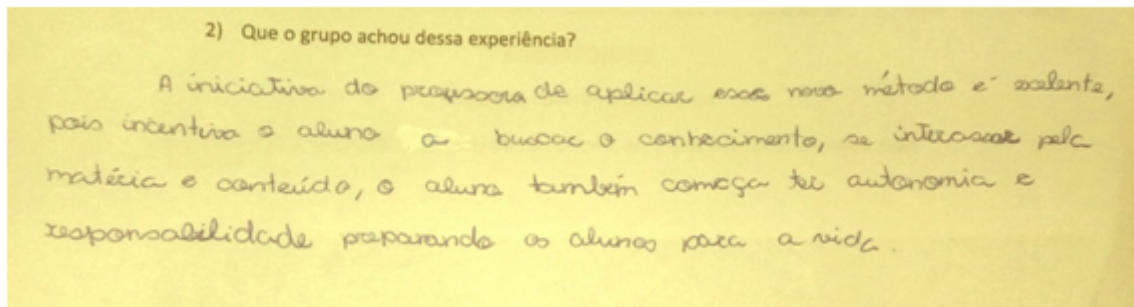 2) Que o grupo achou dessa experiência?
A iniciativa da professora de aplicar esse novo método é exelente,
pois incentiva o aluno a buscar o conhecimento, se interessar pela
matéria e conteúdo, o aluno também começa ter autonomia e
responsabilidade preparando os alunos para a vida.